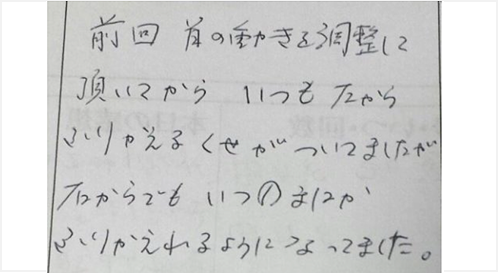 前回 首の動きを調整して
頂いてから いつも 左から
ふりかえる くせが ついてましたが
右からでも いつのまにか
ふりかえれるように なってました。